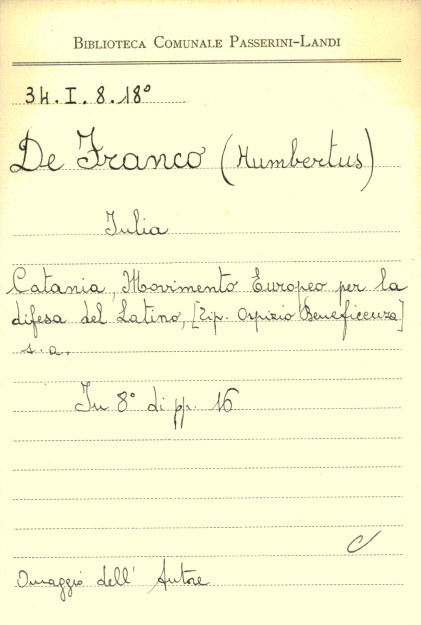 BIBLIOTECA COMUNALE PASSERINI-LANDI
34.I.8.18°
De Franco (Humbertus)
Iulia
Catania, Movimento Europeo per la
difesa del Latino, [Tip. Ospizio Beneficenza]
s.a.
In 8° di pp. 16
Omaggio dell' Autore